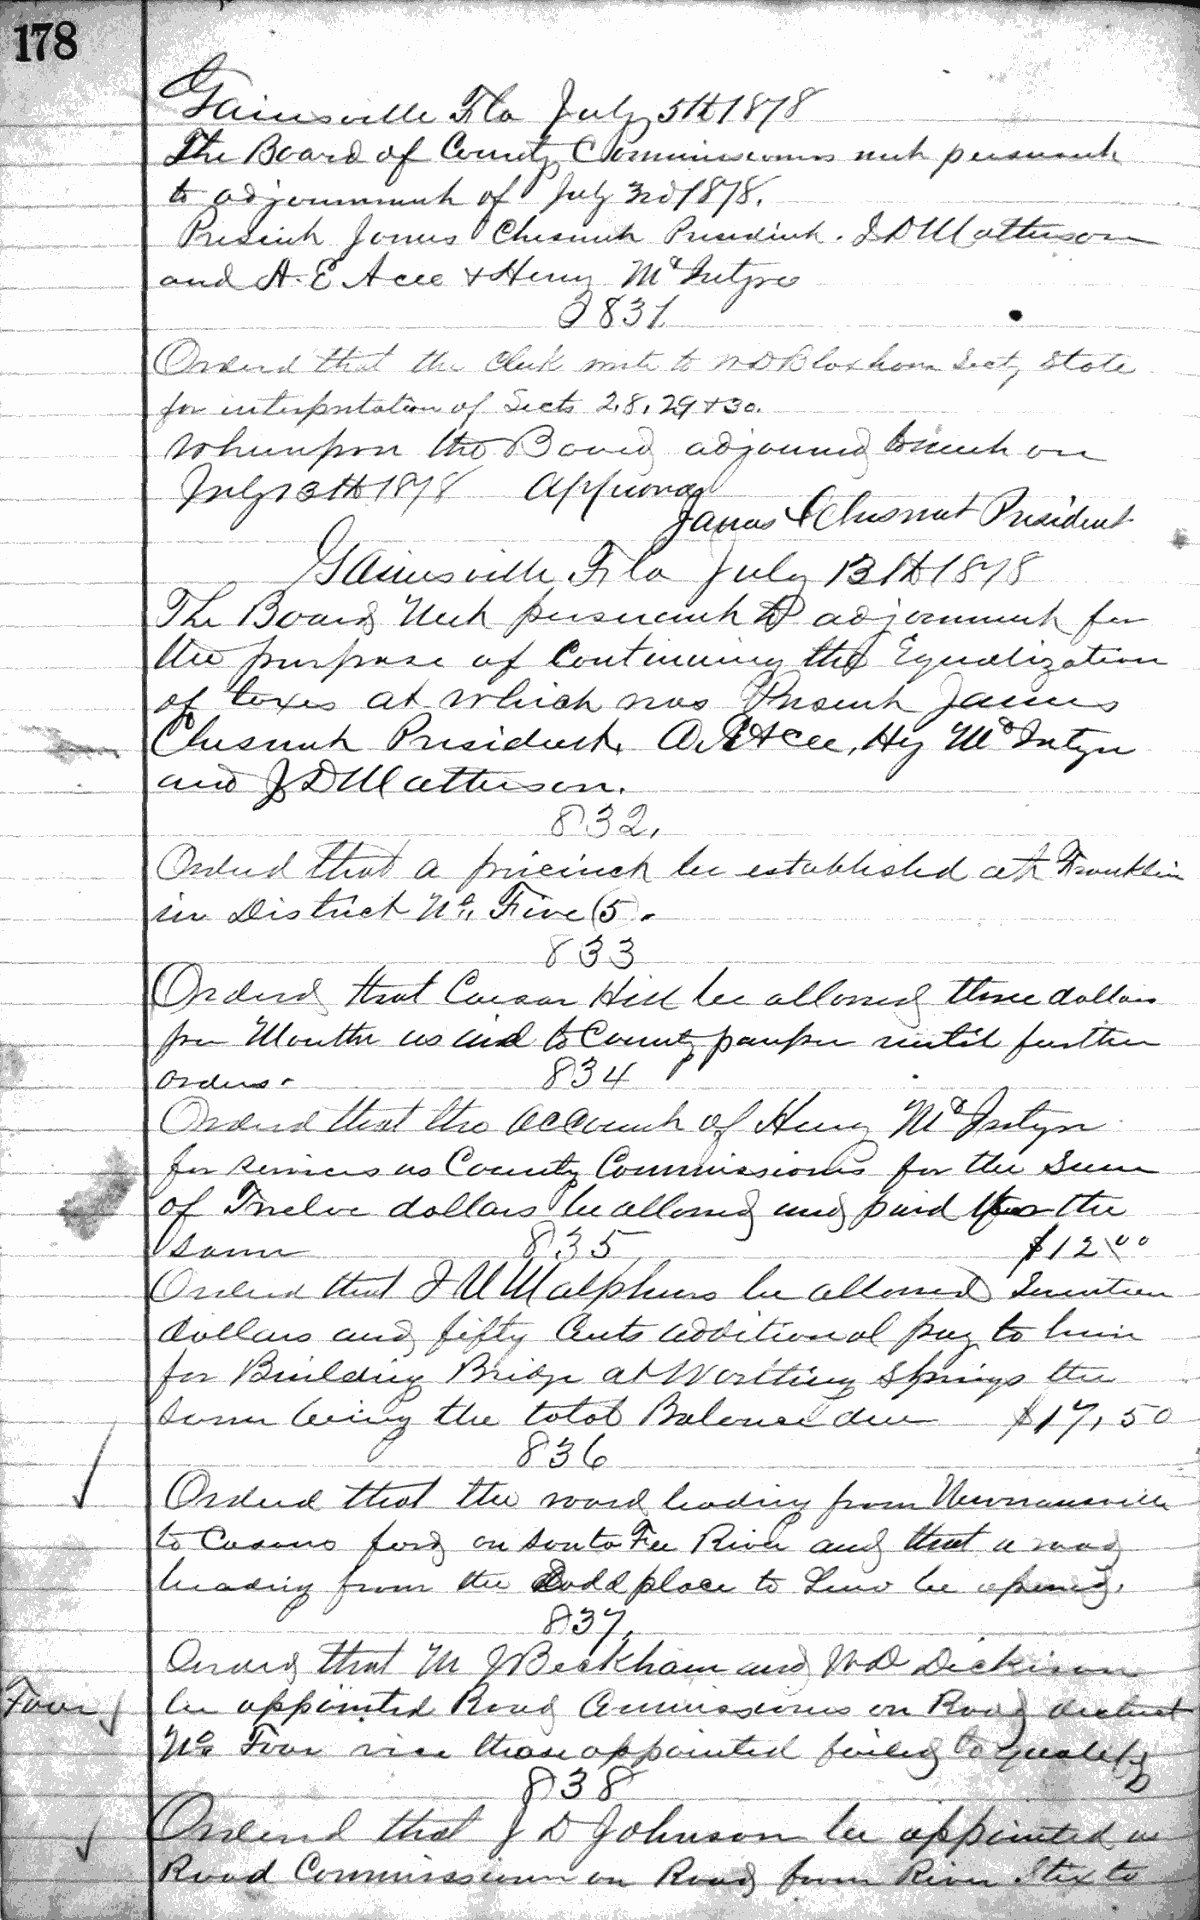 178
Gainsville Fla July 5th 1878
The Board of County Commissioners met persuant
to adjournment of July 3rd 1878.
Present James Chesnut President. J D Matterson
and A. E Acee & Henry McIntyre
831
Orderd that the Clerk write to W D Bloxham Secty State
for interpretation of Sects 28, 29 & 30.
Whereupon the Board adjourned to meet on
July 13th 1878 Approved
James Chesnut President
Gainsville Fla July 13th 1878
The Board Met persuant to adjournment for
the purpose of Continuing the Equalization
of taxes at which was Present James
Chesnut President, A. E Acee, Hy McIntyre
and J D Matterson.
832,
Orderd that a precinct be established at Franklin
in District No. Five (5).
833
Orderd that Caesar Hill be allowed three dollars
per Month as aid to County pauper until further
orders.
834
Orderd that the account of Henry McIntyre
for services as County Commissioners for the Sum
of Twelve dollars be allowed and paid for the
same $12.00
835
Orderd that J M Malphurs be allowed Seventeen
dollars and fifty Cents additional pay to him
for Building Bridge at Worthing Springs the
same being the total Balance due $17,50
836
Orderd that the road leading from Newnansville
to Casons ford on Santa Fee River and that a road
leading from the Dodd place to be opened.
837,
Orderd that M J Beckham and W D Dickison
Four be appointed Road Commissioners on Road district
No. Four vice those appointed failed to qualify
838
Orderd that J D Johnson be appointed as
Road Commissioner on Road from River Stix to